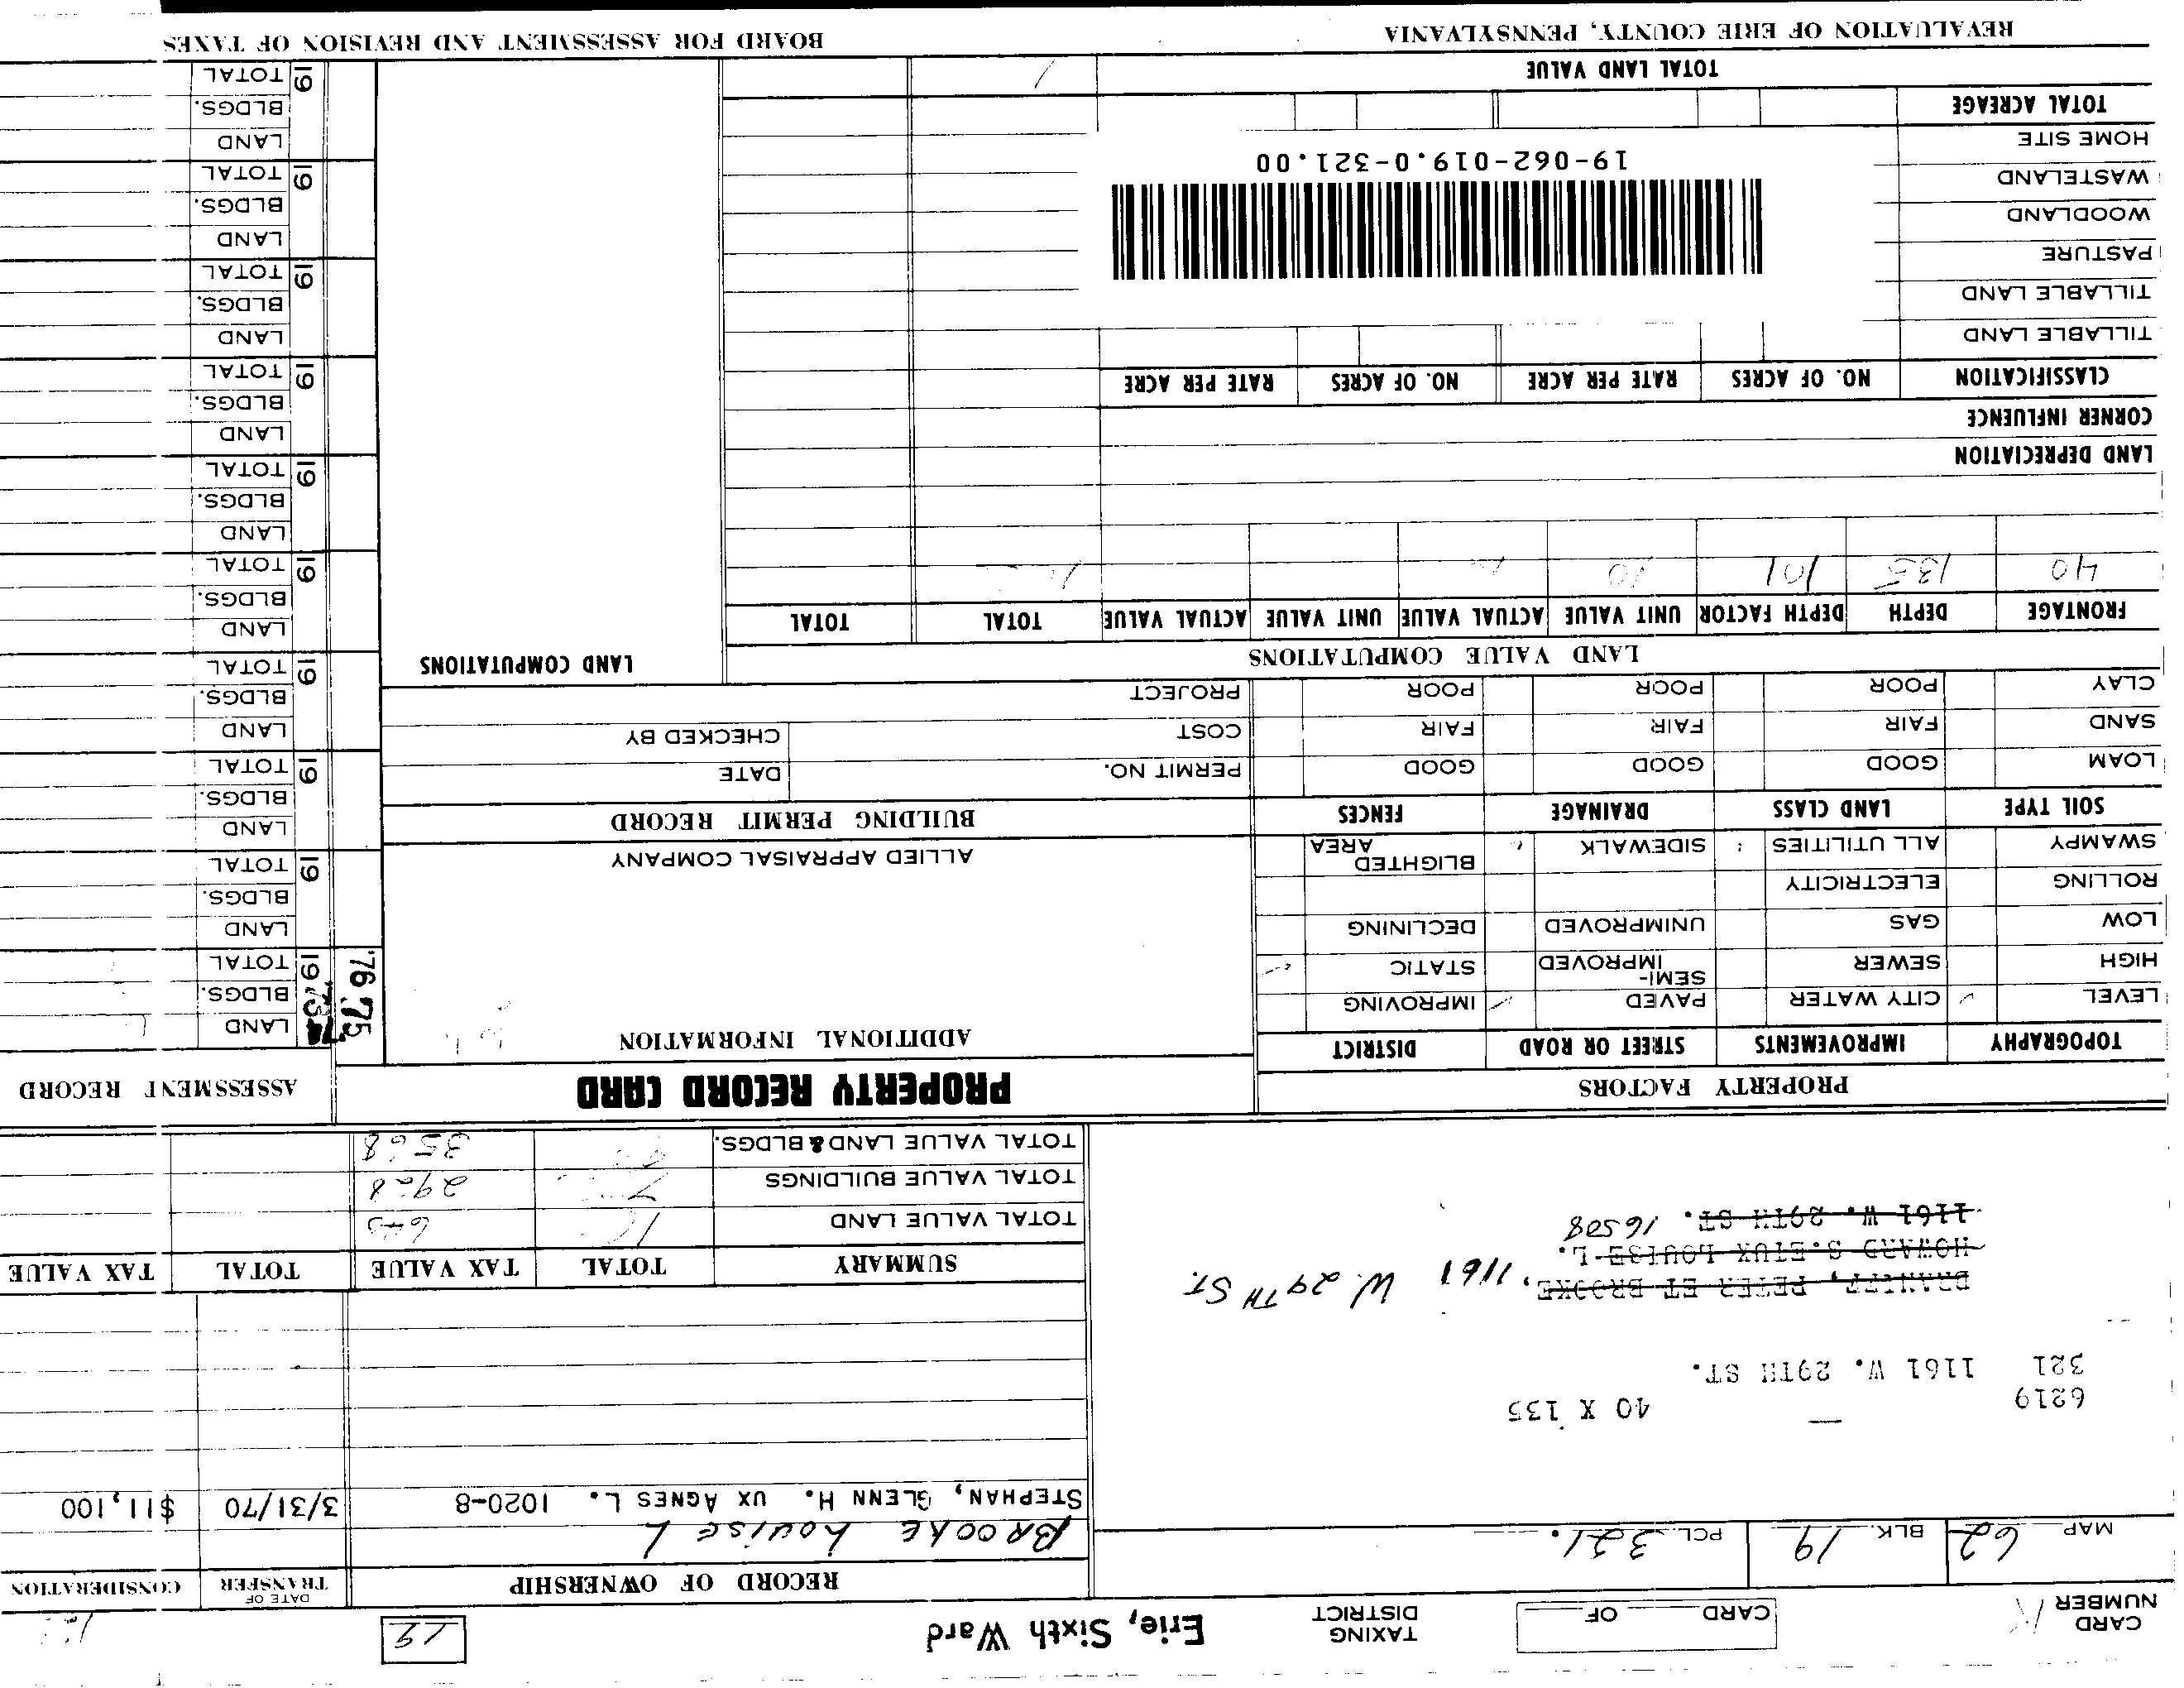 CARD NUMBER
CARD OF
TAXING DISTRICT
Erie, Sixth Ward
19
MAP 62 BLK. 19 PCL. 321.
RECORD OF OWNERSHIP
DATE OF TRANSFER
CONSIDERATION
BROOKE Louise L
STEPHAN, GLENN H. UX AGNES L. 1020-8 3/31/70 $11,100
6219 40 X 135
321 1161 W. 29TH ST.
PETER ET BROOKE, 1161 W. 29TH ST.
HOWARD S. ETUX LOUISE L.
1161 W. 29TH ST. 16508
SUMMARY TOTAL TAX VALUE TOTAL TAX VALUE
TOTAL VALUE LAND
TOTAL VALUE BUILDINGS
TOTAL VALUE LAND & BLDGS.
PROPERTY FACTORS
PROPERTY RECORD CARD
ASSESSMENT RECORD
TOPOGRAPHY IMPROVEMENTS STREET OR ROAD DISTRICT
LEVEL CITY WATER PAVED IMPROVING
HIGH SEWER SEMI-IMPROVED STATIC
LOW GAS UNIMPROVED DECLINING
ROLLING ELECTRICITY
SWAMPY ALL UTILITIES SIDEWALK BLIGHTED AREA
SOIL TYPE LAND CLASS DRAINAGE FENCES
LOAM GOOD GOOD GOOD
SAND FAIR FAIR FAIR
CLAY POOR POOR POOR
ADDITIONAL INFORMATION
ALLIED APPRAISAL COMPANY
BUILDING PERMIT RECORD
PERMIT NO. DATE
COST CHECKED BY
PROJECT
LAND VALUE COMPUTATIONS
LAND COMPUTATIONS
FRONTAGE DEPTH DEPTH FACTOR UNIT VALUE ACTUAL VALUE UNIT VALUE ACTUAL VALUE TOTAL TOTAL
40 135 101
LAND DEPRECIATION
CORNER INFLUENCE
CLASSIFICATION NO. OF ACRES RATE PER ACRE NO. OF ACRES RATE PER ACRE
TILLABLE LAND
TILLABLE LAND
PASTURE
WOODLAND
WASTELAND
HOME SITE
19-062-019.0-321.00
TOTAL ACREAGE
TOTAL LAND VALUE
'76 '75
19 LAND
BLDGS.
TOTAL
19 LAND
BLDGS.
TOTAL
19 LAND
BLDGS.
TOTAL
19 LAND
BLDGS.
TOTAL
19 LAND
BLDGS.
TOTAL
19 LAND
BLDGS.
TOTAL
19 LAND
BLDGS.
TOTAL
19 LAND
BLDGS.
TOTAL
19 LAND
BLDGS.
TOTAL
19 LAND
BLDGS.
TOTAL
REVALUATION OF ERIE COUNTY, PENNSYLVANIA
BOARD FOR ASSESSMENT AND REVISION OF TAXES